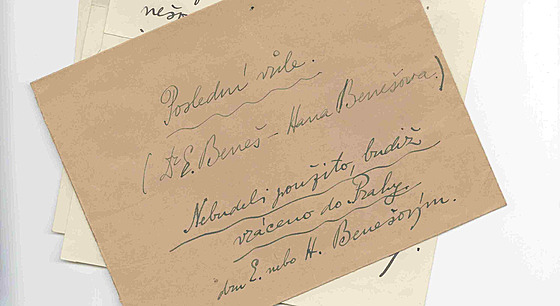 nešm
Poslední vůle.
(Dr E. Beneš – Hana Benešova.)
Nebudeli použito, budiž
vráceno do Prahy
dru E. nebo H. Benešovým.